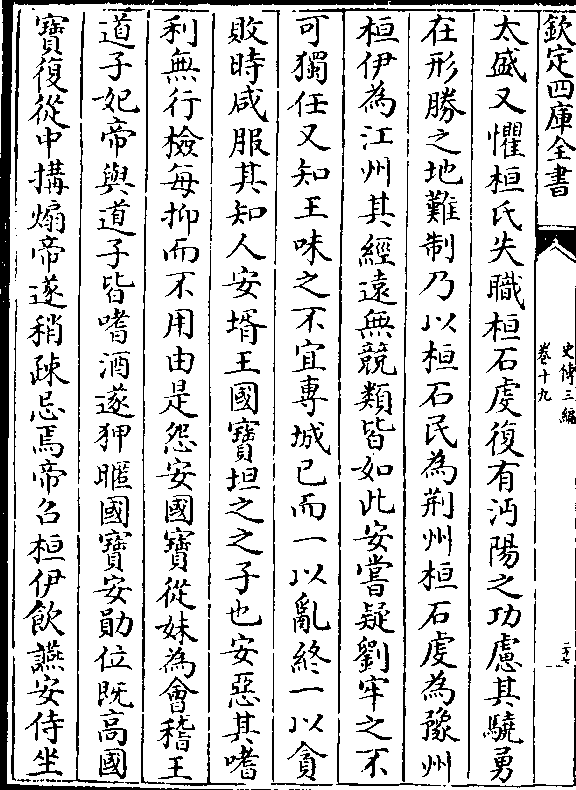 欽定四庫全書
史傳三編
卷十九
二十七
太盛又懼桓氏失職桓石虔復有沔陽之功慮其驍勇
在形勝之地難制乃以桓石民為荆州桓石虔為豫州
桓伊為江州其經遠無競類皆如此安嘗疑劉牢之不
可獨任又知王味之不宜專城已而一以亂終一以貪
敗時咸服其知人安壻王國寶坦之之子也安惡其嗜
利無行檢每抑而不用由是怨安國寶從妹為會稽王
道子妃帝與道子皆嗜酒遂狎暱國寶安勛位既高國
寶復從中搆煽帝遂稍疎忌焉帝召桓伊飲讌安侍坐